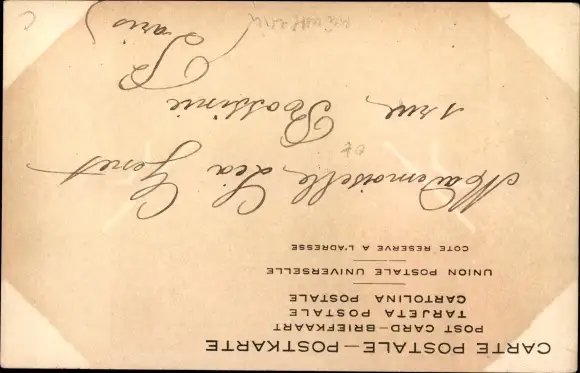 CARTE POSTALE—POSTKARTE
POST CARD—BRIEFKAART
TARJETA POSTALE
CARTOLINA POSTALE
UNION POSTALE UNIVERSELLE
COTE RESERVE A L'ADRESSE
Mademoiselle Léa Genet
rue Rossini
Paris